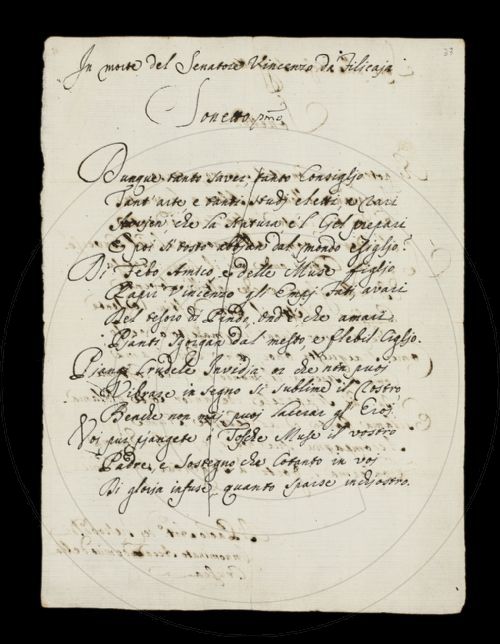 33
In morte del Senatore Vincenzo da Filicaja
Sonetto pmo
Dunque tanto saver, tanto Consiglio
Tant' arte e tanti studj eletti, e Cari
che la Natura e'l Ciel prepari
E poi si tosto dal mondo esiglio?
Di Febo Amico, e delle Muse figlio
Rapir Vincenzo gli Empj Fati, avari
Del tesoro di Pindo, ond' è che amari
Pianti sgorgan dal mesto, e flebil Ciglio.
Piangi Crudele Invidia, or che non puoj
Vibrare in segno sì sublime il Rostro
Benche non mai puoj lacerar gl' Eroj
Voi pur piangete o Tosche Muse il vostro
Padre, e Sostegno che Cotanto in voj
Di gloria infuse, quanto sparse inchiostro.